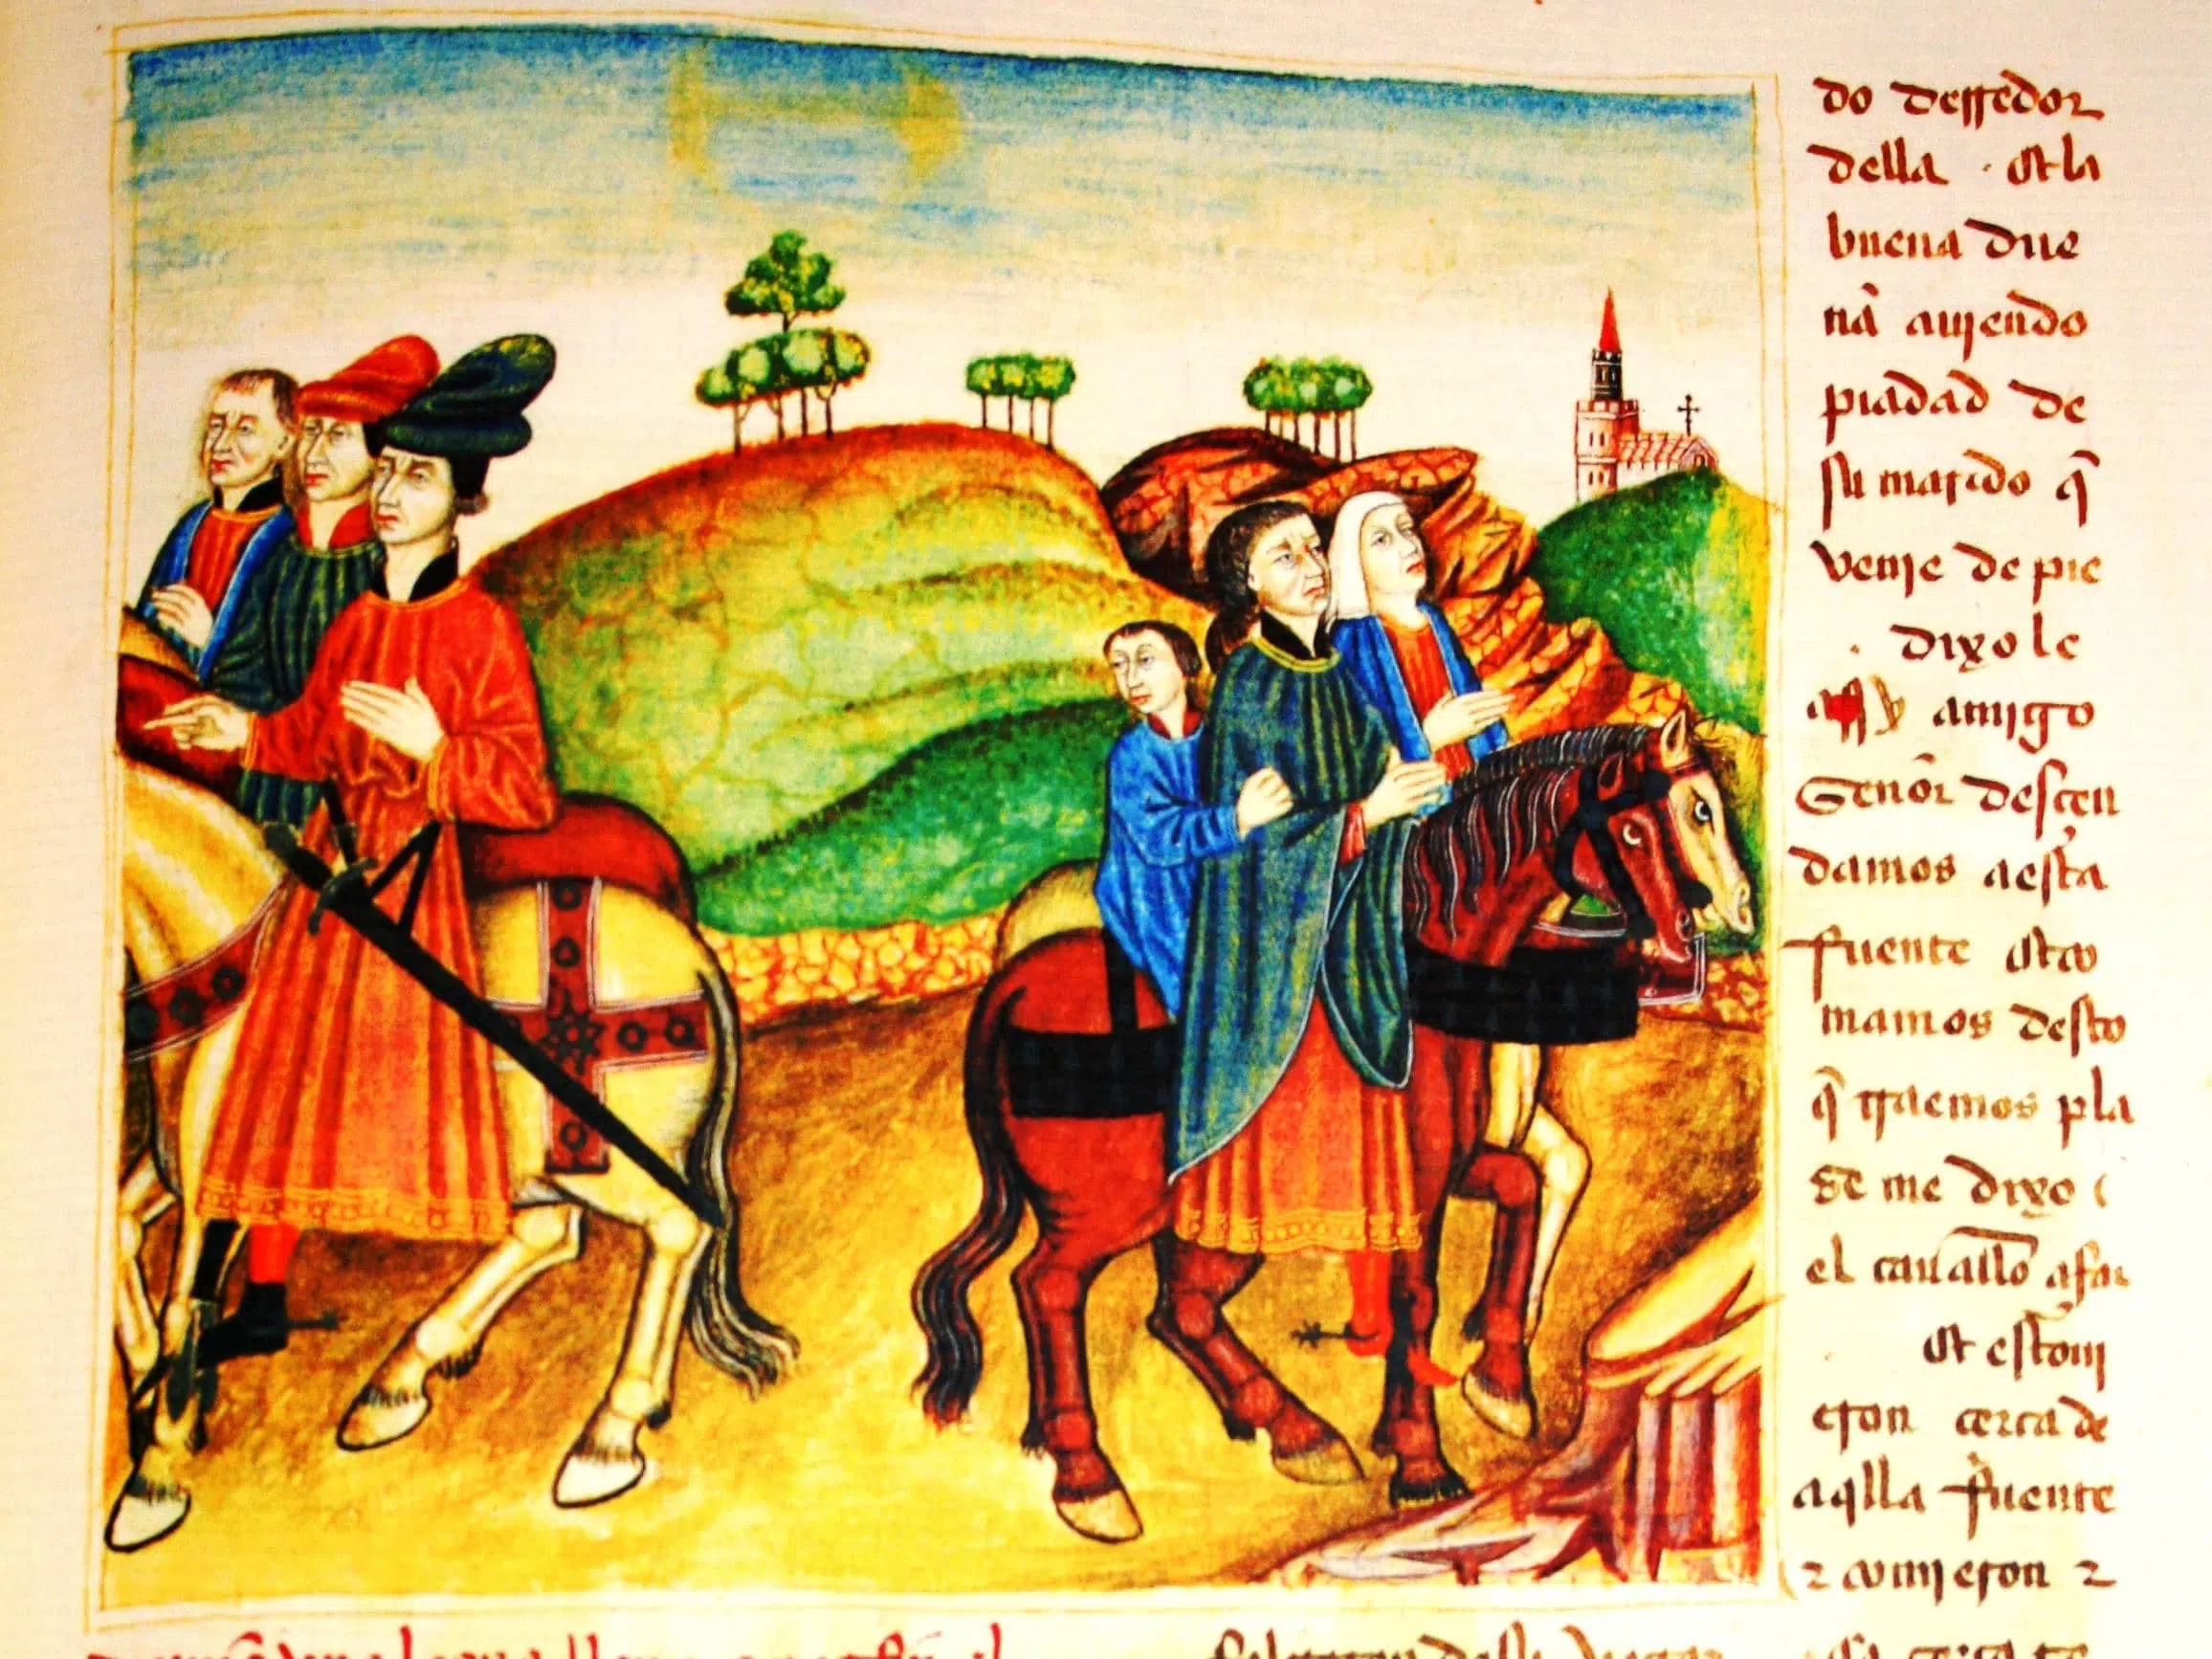 do derredor
della · Et la
buena due
nã auiendo
piadad de
su marido q̃
venie de pie
· dixole
amigo
Señor descen
damos a esta
fuente Et co
mamos desto
q̃ traemos pla
ze me dixo
el cauallo
Et estoui
eron cerca de
aq̃lla fuente
⁊ comieron ⁊